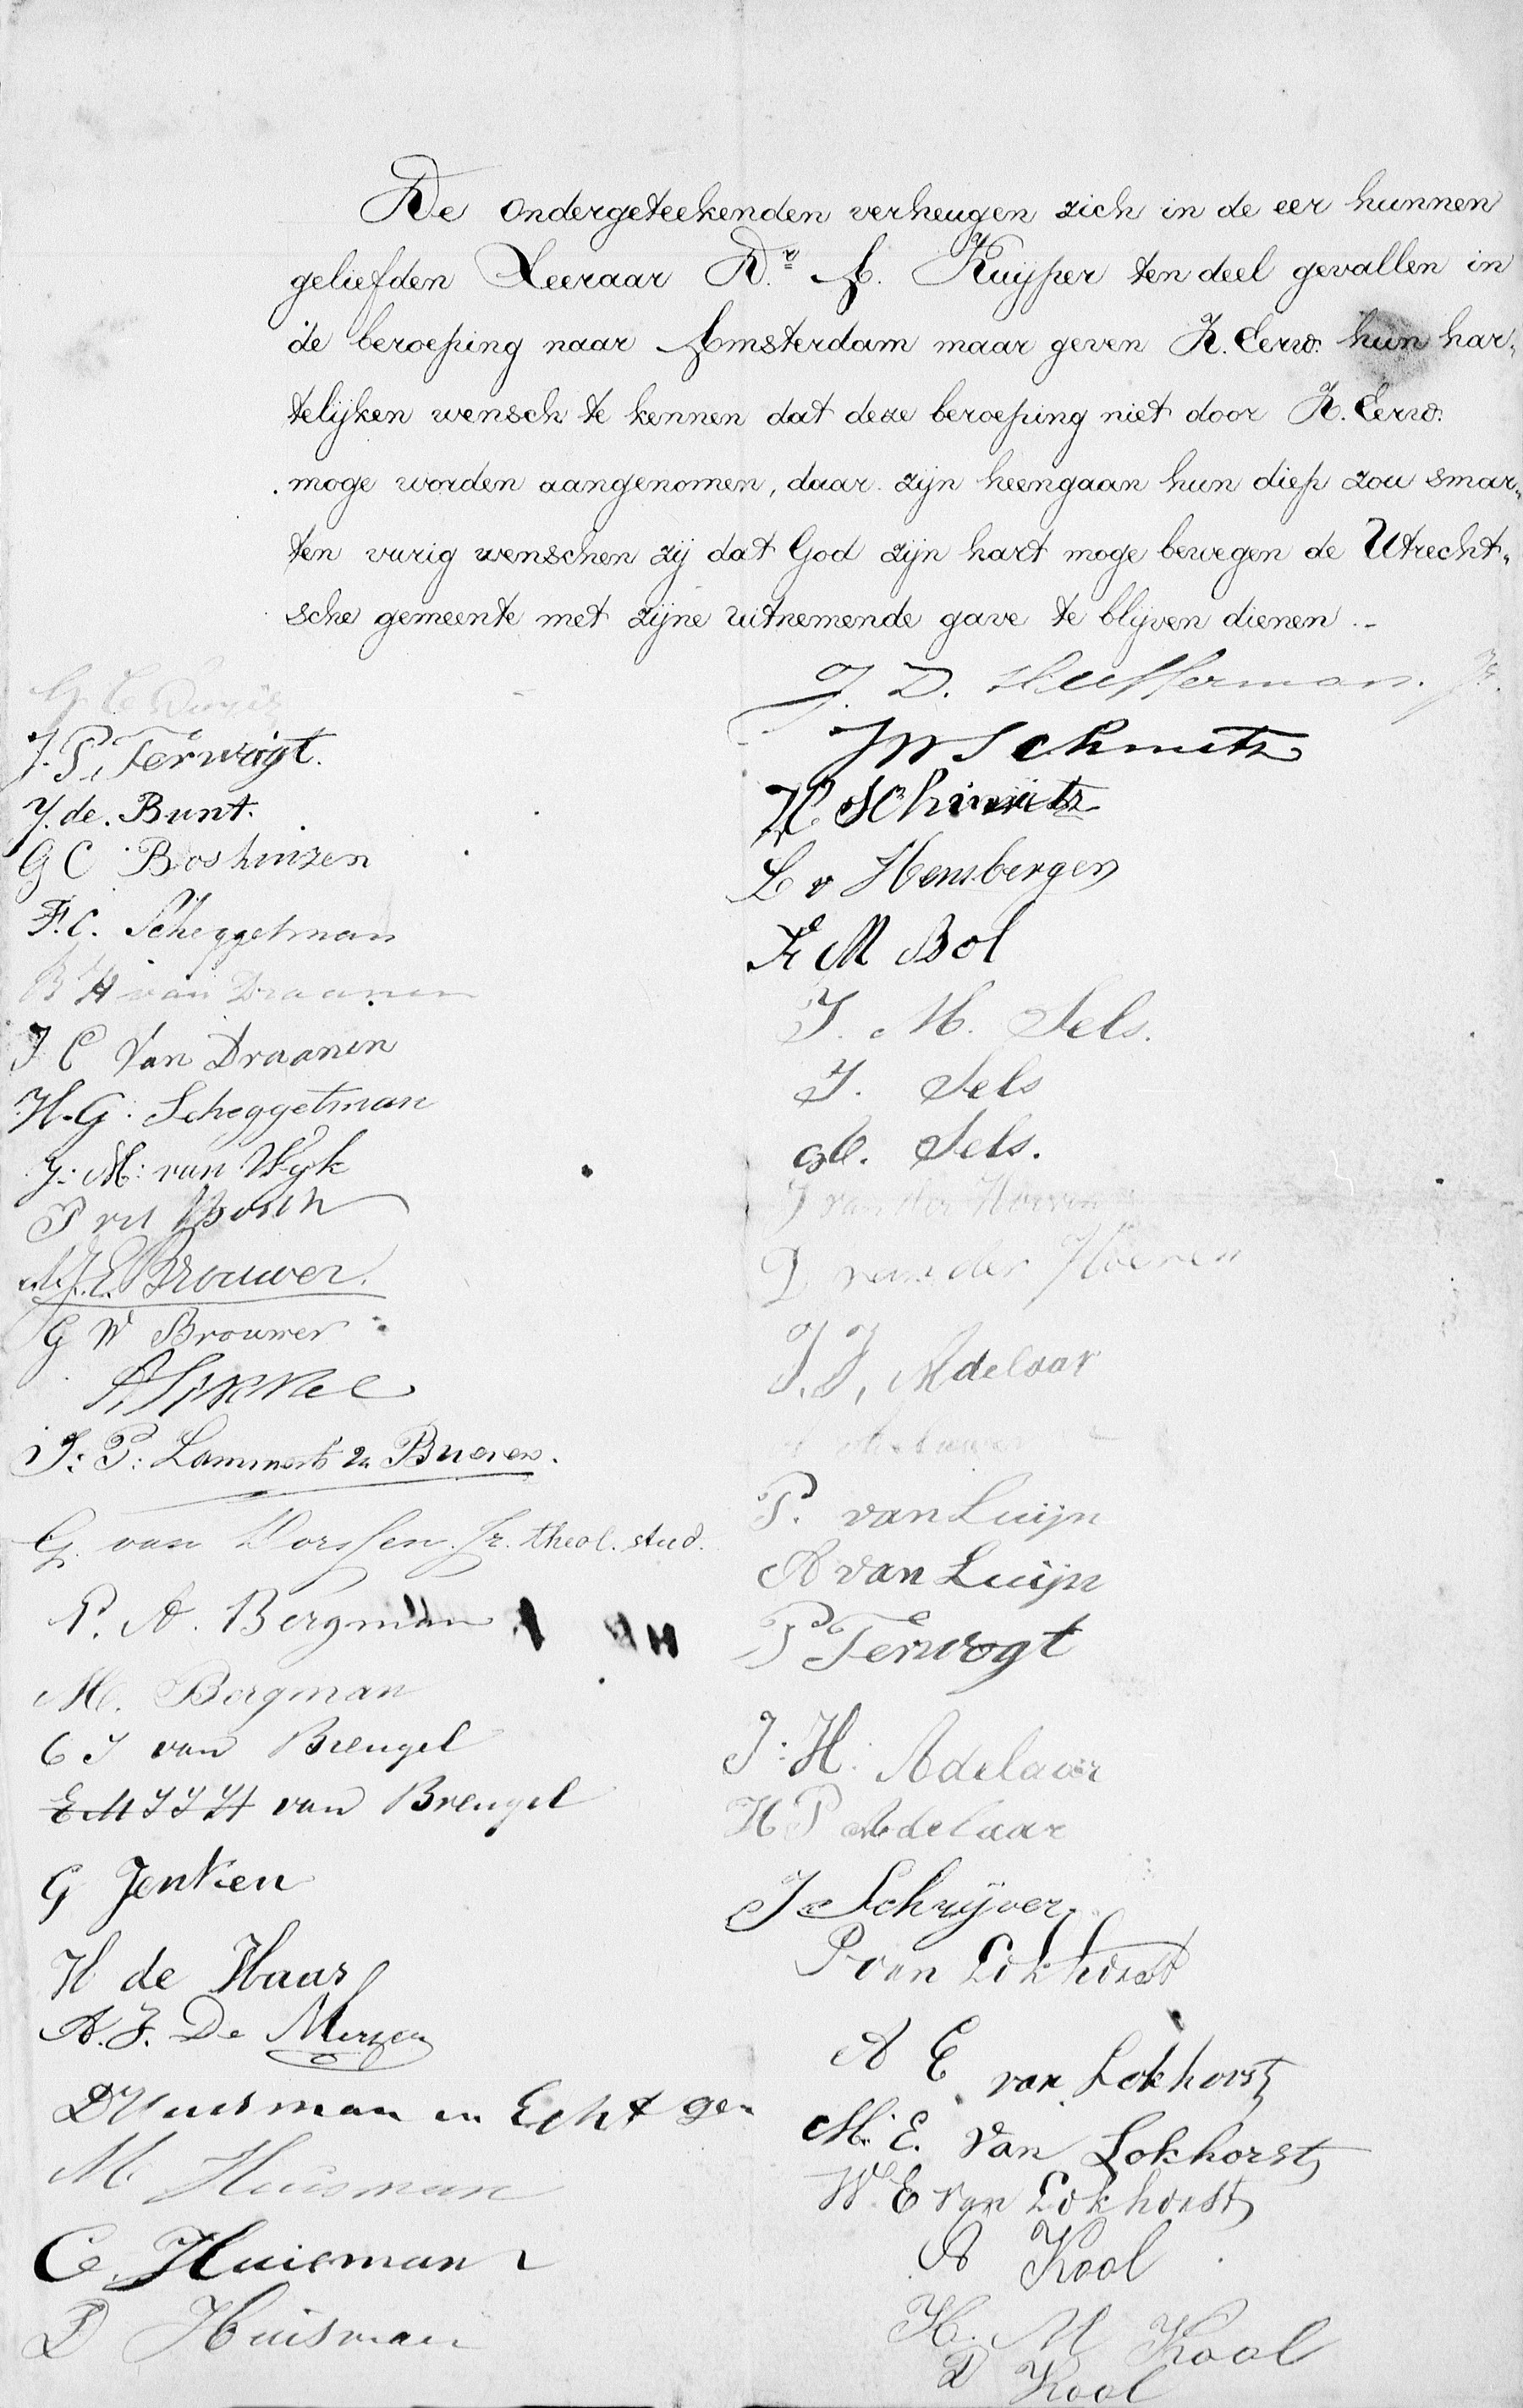 De Ondergeteekenden verheugen zich in de eer hunnen
geliefden Leeraar Dr. A. Kuijper ten deel gevallen in
de beroeping naar Amsterdam maar geven Z. Eerw. hun har„
telijken wensch te kennen dat deze beroeping niet door Z. Eerw.
moge worden aangenomen, daar zijn heengaan hun diep zou smar„
ten vurig wenschen zij dat God zijn hart moge bewegen de Utrecht„
sche gemeente met zijne uitnemende gave te blijven dienen.-
J. P. Terwogt.
J. de. Bunt.
G C Boshuizen
F. C. Scheggetman
B H van Draanen
J C Van Draanen
H. G. Scheggetman
J. M. van Wyk
P Bosch
Brouwer.
G W Brouwer
J. P. Lammerts v. Bueren.
G. van Dorssen. Jr. theol. stud.
P. A. Bergman
M. Bergman
C J van Breugel
E M J J H van Breugel
G Jenken
H de Haas
A. J. De
D Huisman en Echt gen
M Huisman
C. Huisman
D Huisman
J. D. Jr.
J W Schmitz
H Schmitz
L v Hensbergen
E M Bol
J. M. Sels.
J. Sels
Sels.
J van der Hoeven
D van der Hoeven
J. J. Adelaar
P. van Luijn
A van Luijn
P Terwogt
J. H. Adelaar
H P Adelaar
J Schrijver.
P van Lokhorst
A E van Lokhorst
M. E. van Lokhorst
W. E van Lokhorst
A Kool
H. M Kool
D Kool